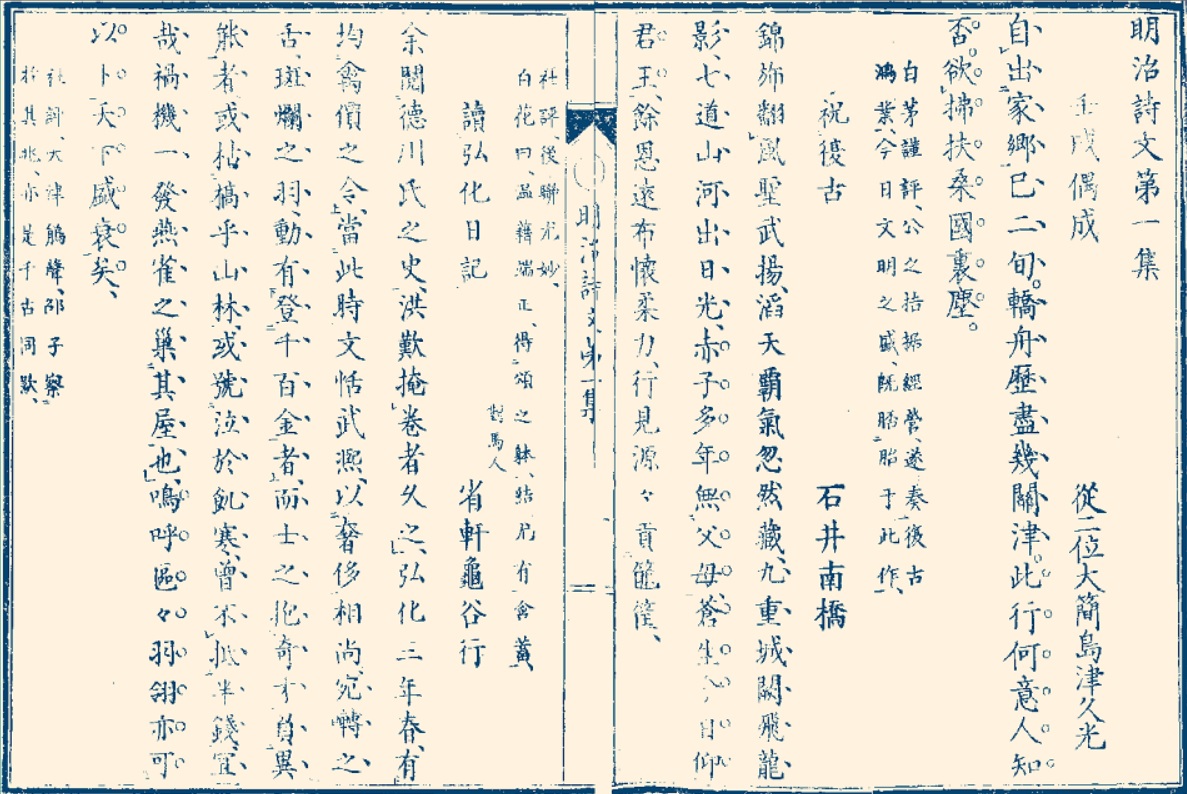 明治詩文第一集
壬戌偶成
從二位大簡島津久光
自出家鄉已二旬。轎舟歷盡幾關津。此行何意人知
否。欲拂扶桑國裏塵。
白茅謹評、公之拮据經營、遂奏復古
鴻業、今日文明之盛、既胚胎于此作、
祝復古
石井南橋
錦旆翻風聖武揚、滔天霸氣忽然藏、九重城闕飛龍
影、七道山河出日光、赤子多年無父母、蒼生今日仰
君王、餘恩遠布懷柔力、行見源々貢篚筐、
明治詩文第一集
社評、後聯尤妙、
白花曰、温藉端正、得頌之躰、結尾有含蓄、
讀弘化日記
對馬人
省軒龜谷行
余閱德川氏之史、洪歎掩卷者久之、弘化三年春、有
均禽價之令、當此時文恬武凞、以奢侈相尚、宛轉之
舌、斑爛之羽、動有登千百金者、而士之抱奇才自異
能者、或枯槁乎山林、或號泣於飢寒、曾不抵半錢、宜
哉禍機一發、燕雀之巢其屋也、嗚呼區々羽翎亦可
以卜天下盛衰矣、
社評、大津鵑聲、邵子察
於其兆、亦是千古同歎、